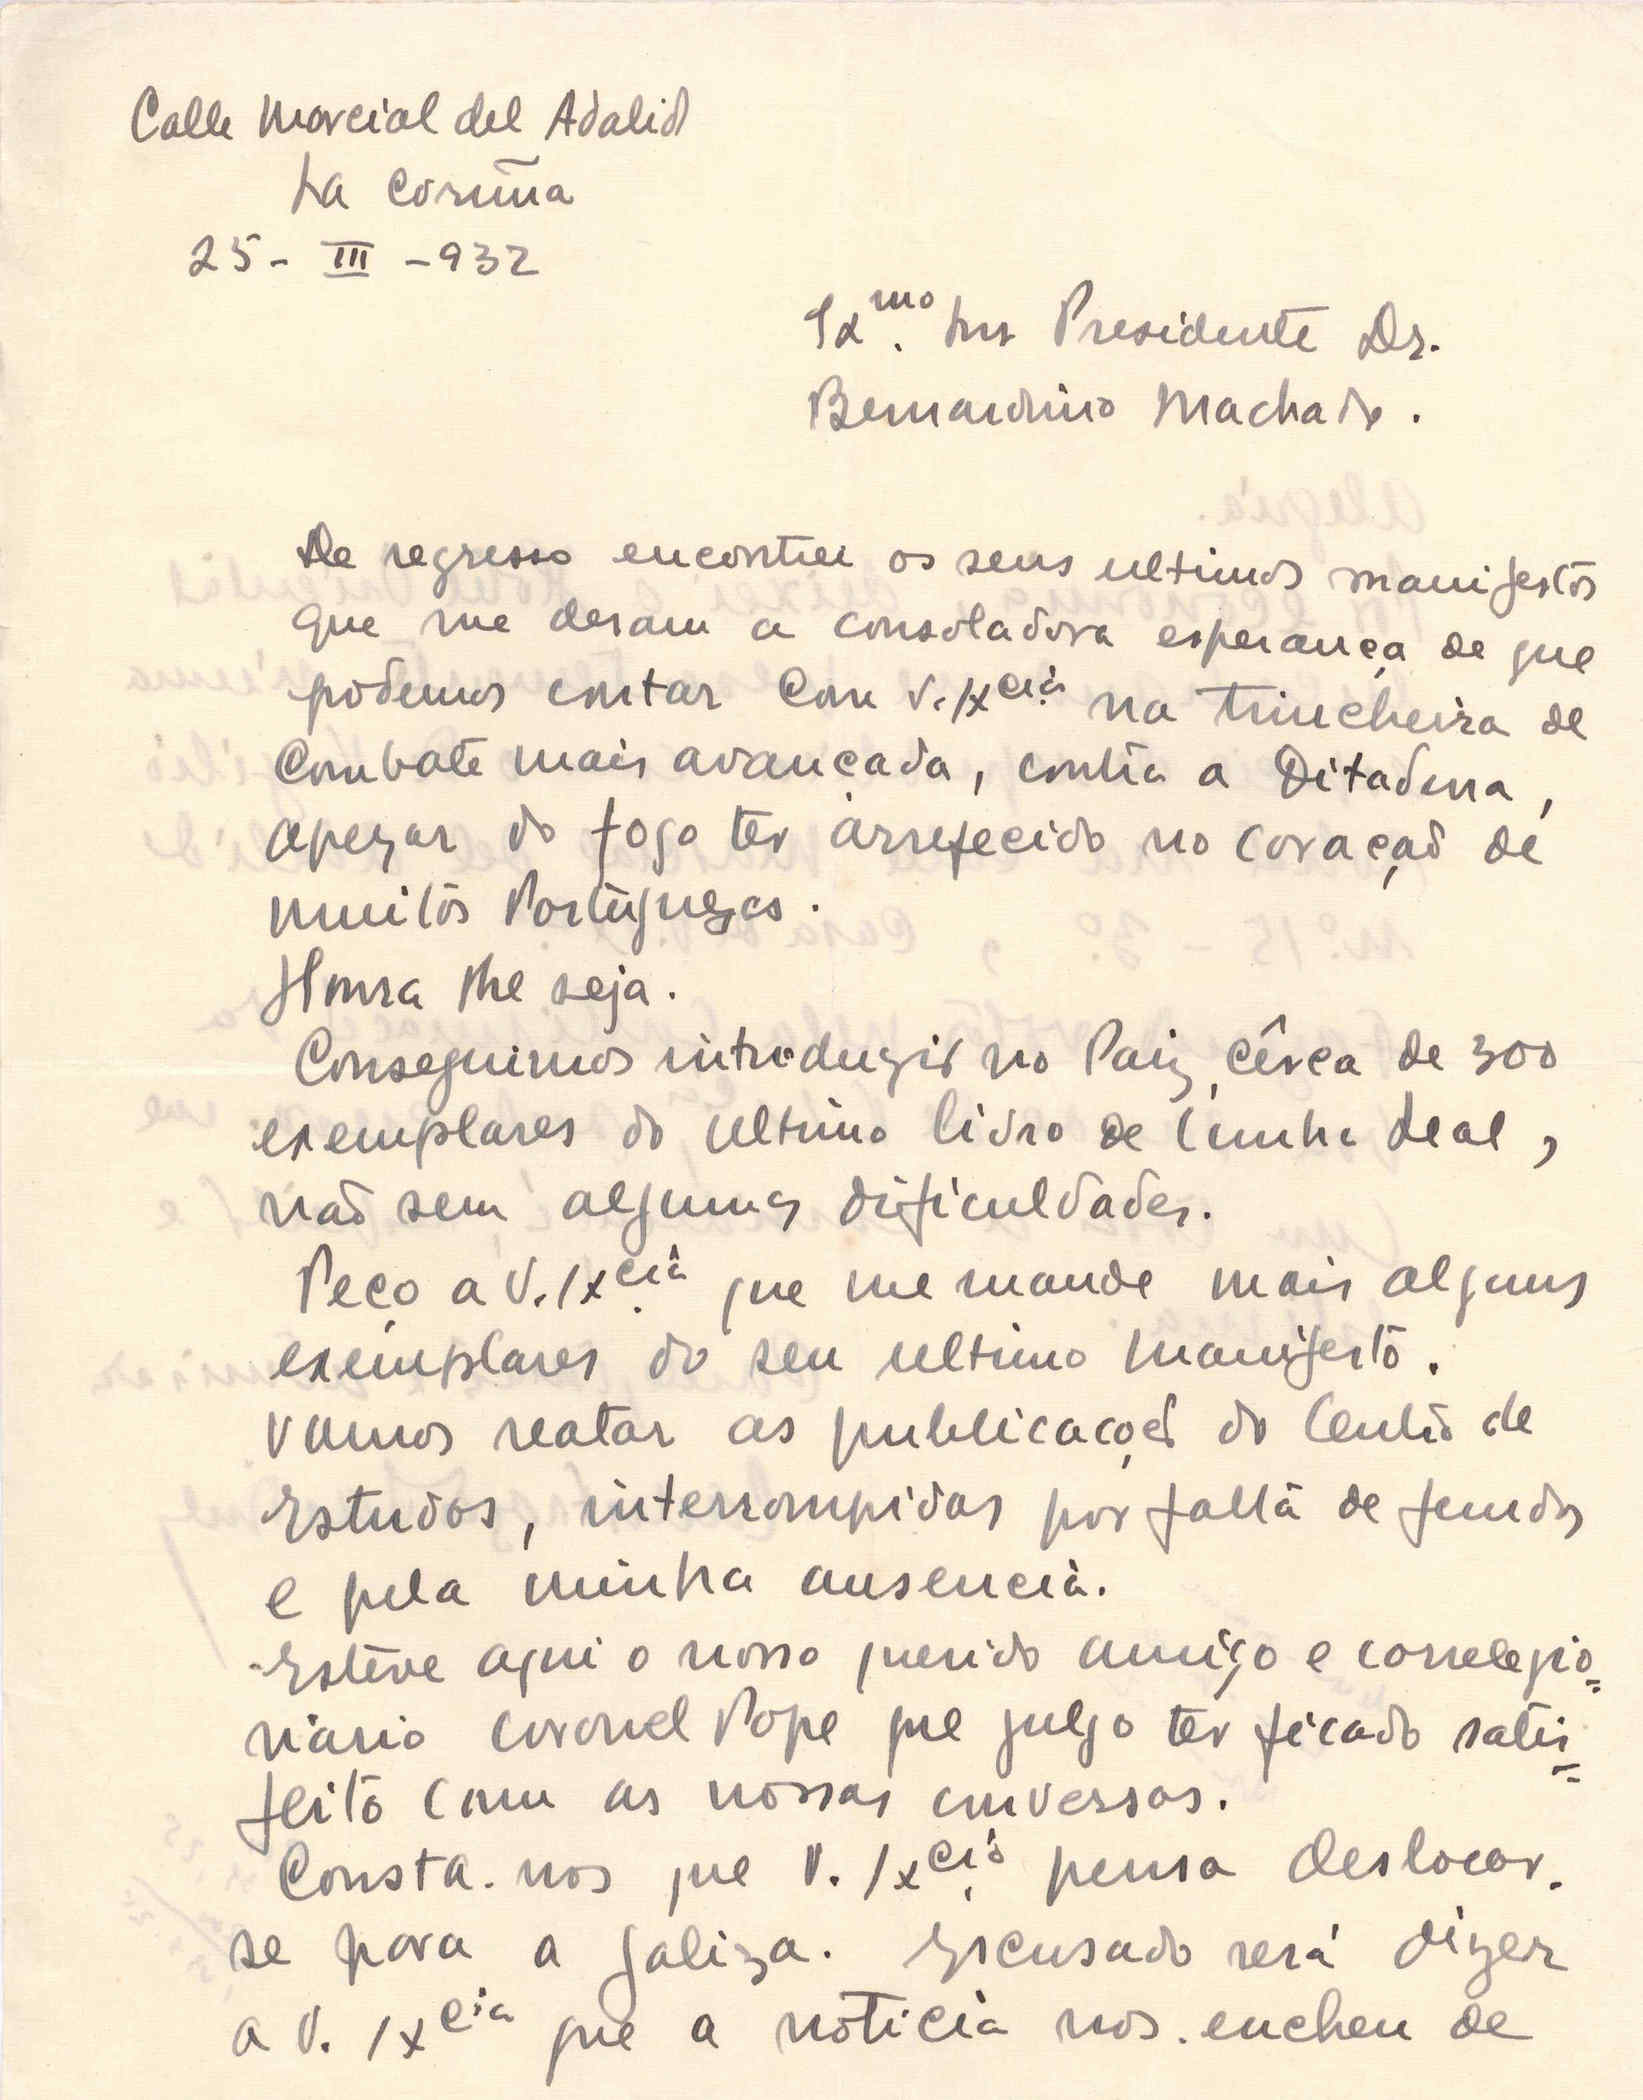 Calle Marcial del Adalid
La Coruña
25 - III - 932
Exmo. Snr Presidente Dr.
Bernardino Machado.
De regresso encontrei os seus ultimos manifestos
que me deram a consoladora esperança de que
podemos contar com V. Excia. na trincheira de
combate mais avançada, contra a Ditadura,
apezar do fogo ter arrefecido no coração de
muitos Portuguezes.
Honra lhe seja.
Conseguimos introduzir no Paiz, cêrca de 300
exemplares do ultimo livro de Cunha Leal,
não sem algumas dificuldades.
Peço a V. Excia. que me mande mais alguns
exemplares do seu ultimo manifesto.
Vamos reatar as publicações do Centro de
Estudos, interrompidas por falta de fundos
e pela minha ausencia.
Estève aqui o nosso querido amigo e correlegio=
nário coronel Pope que julgo ter ficado satis=
feito com as nossas conversas.
Consta-nos que V. Excia. pensa deslocar-
se para a Galiza. Escusado será dizer
a V. Excia que a noticia nos encheu de